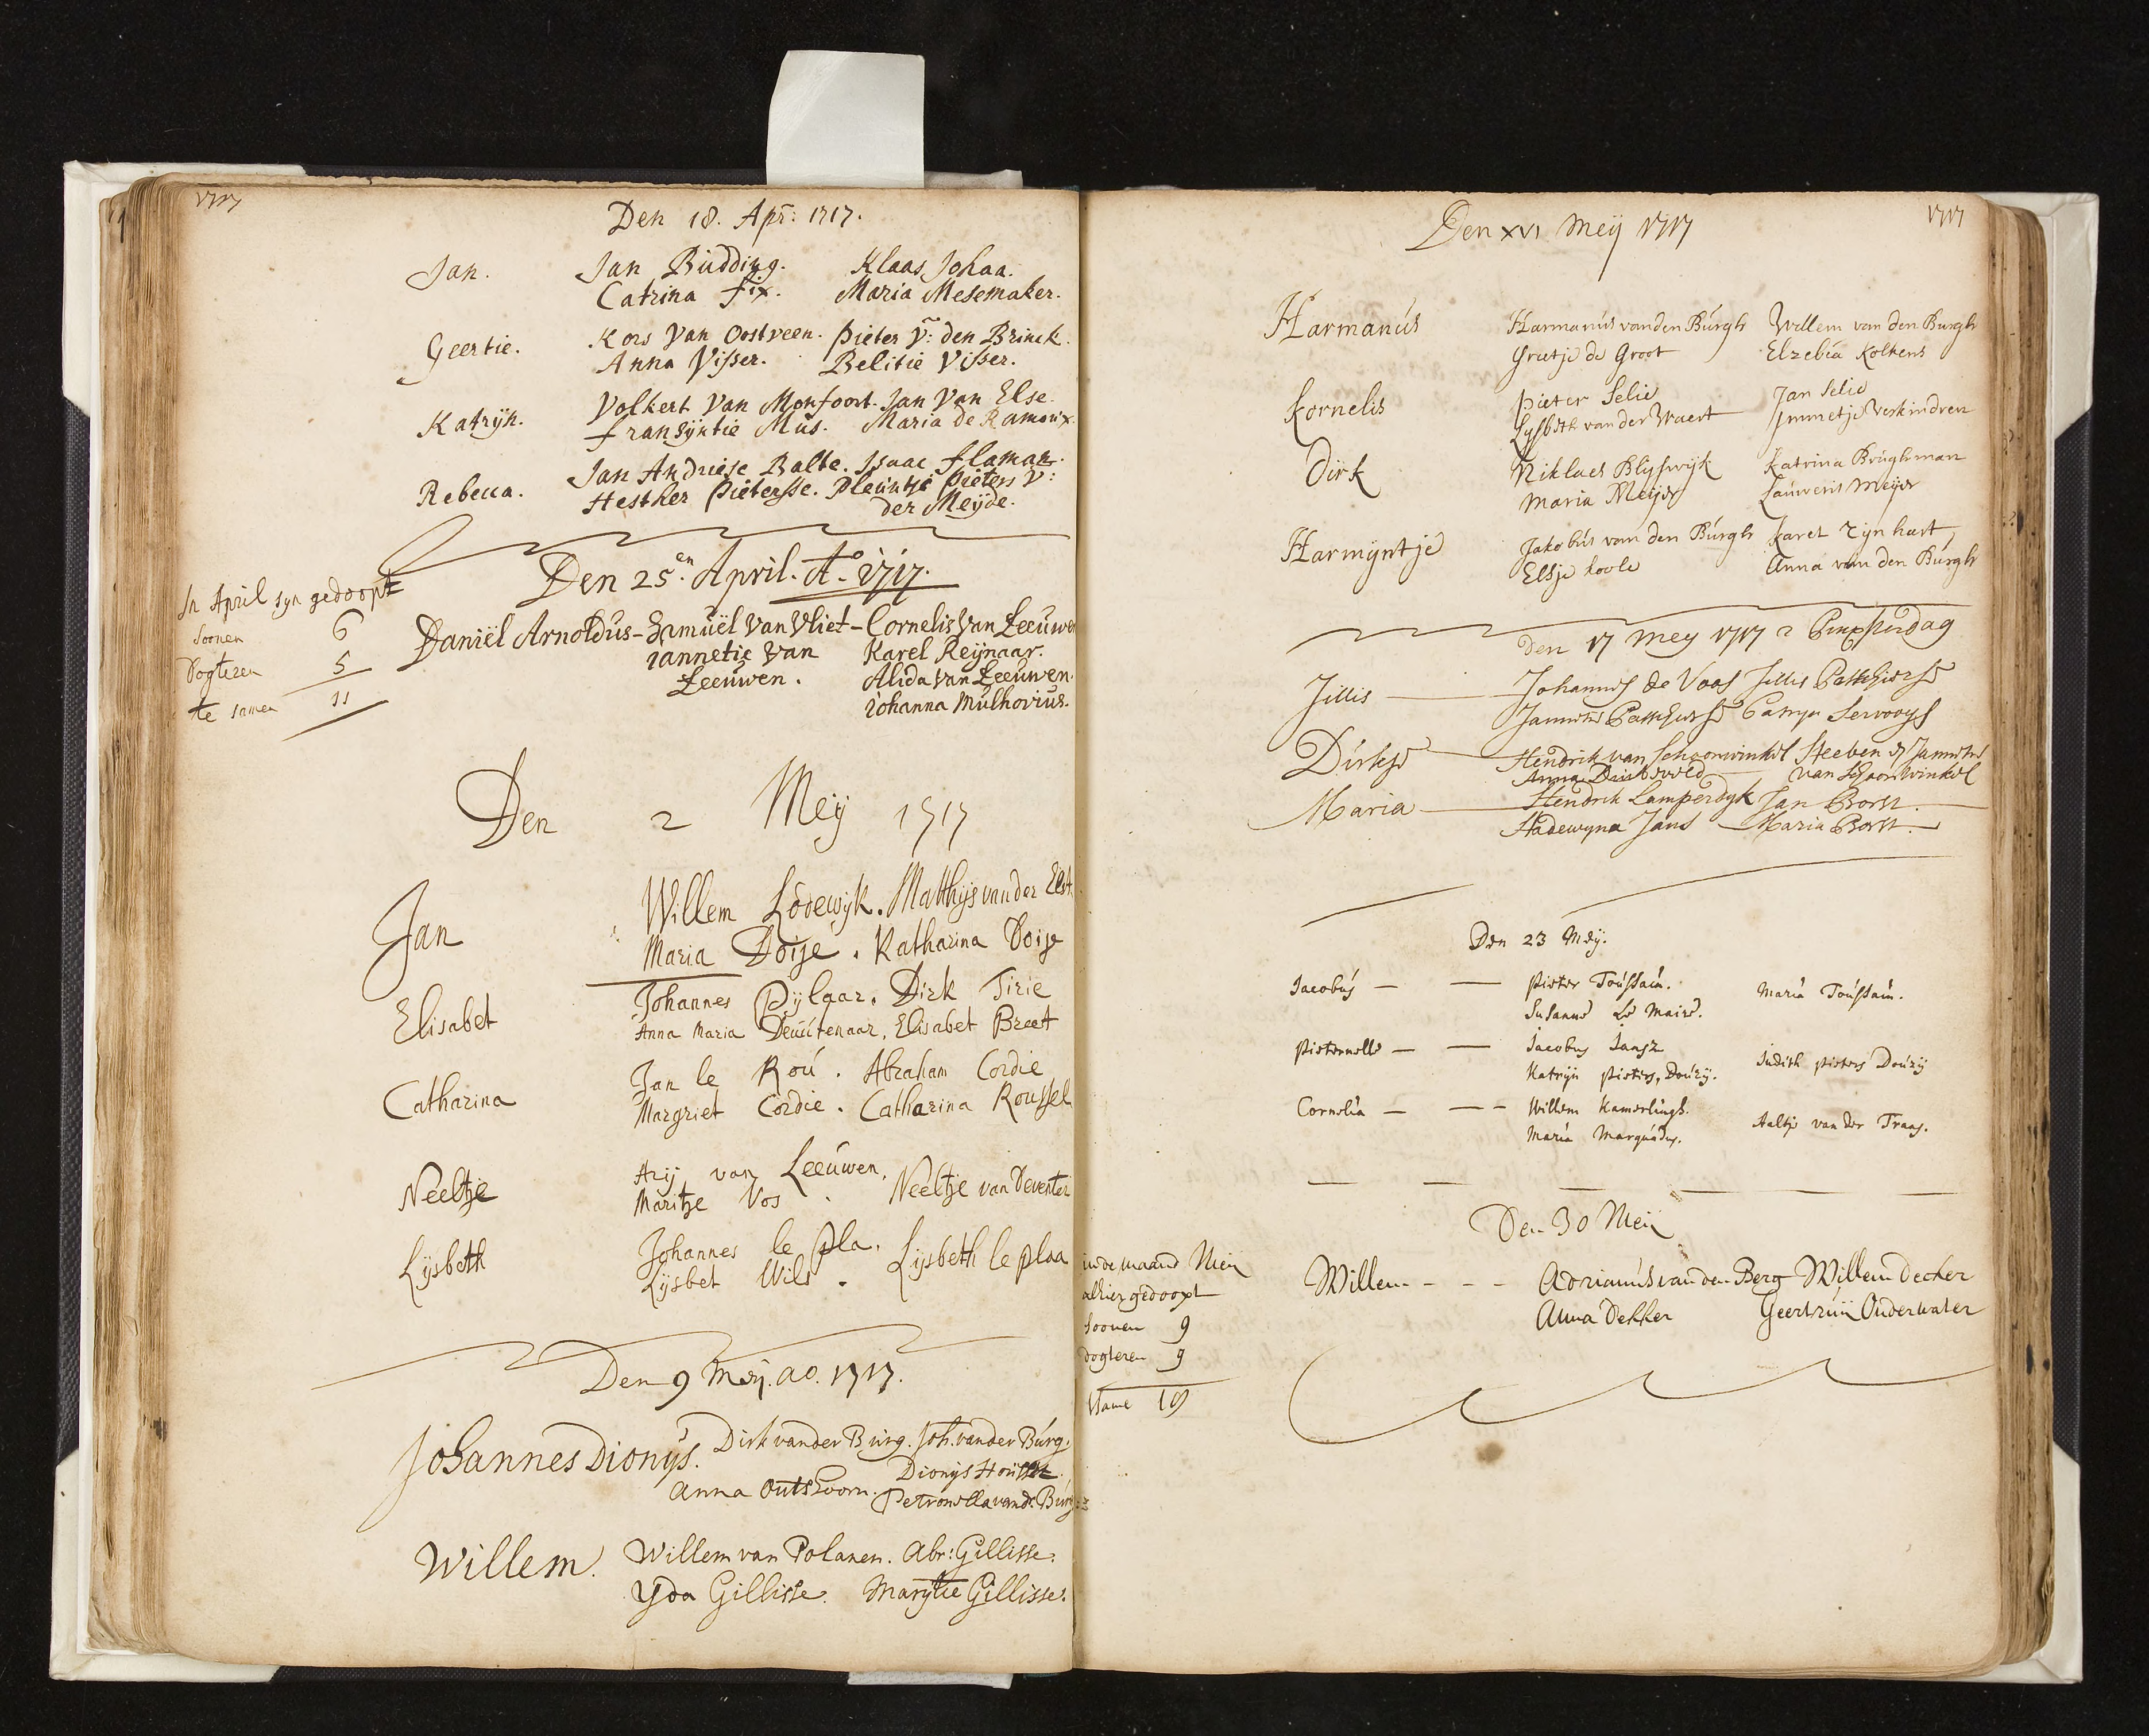 1717
Den 18. Apr: 1717.
Jan. Jan Budding. Klaas Johaa.
Catrina fix. Maria Mesemaker.
Geertie. Kors Van Oostveen. Pieter V: den Brinck.
Anna Visser. Belitie Visser.
Katrijn. Volkert Van Monfoort. Jan Van Else.
fransijntie Mus. Maria de Ramoux.
Rebecca. Jan Andriese Balte. Isaac flaman.
Hesther Pietersse. Pleuntje Pieters V:
der Meijde.
Den 25en. April. Ao. 1717.
In April syn gedoopt
soonen 6
Dogteren 5
te samen 11
Daniël Arnoldus - Samuël Van Vliet - Cornelis Van Leeuwen
Jannetie Van Karel Reijnaar.
Leeuwen. Alida Van Leeuwen.
Johanna Mulhovius.
Den 2 Meij 1717
Jan Willem Lodewijk. Matthijs van der Elst.
Maria Doise. Katharina Doise
Elisabet Johannes Pijlaar. Dirk Tirie
Anna Maria Deuütenaar. Elisabet Breet
Catharina Jan le Roú. Abraham Cordie
Margriet Cordie. Catharina Roussel
Neeltje Arij van Leeuwen.
Maritje Vos. Neeltje van Deventer
Lijsbeth Johannes le pla.
Lijsbet Wils. Lijsbeth le plaa
Den 9 Meij. ao. 1717.
Johannes Dionijs. Dirk vander Burg. Joh. vander Búrg.
Dionijs
Anna Outshoorn. Petronella vand. Burg
Willem. Willem van Polanen. Abr: Gillisse.
Yda Gillisse. Marijtie Gillisse.
1717
Den xvi Meij 1717
Harmanús Harmanús van den Búrgh Willem van den Burgh
Grietje de Groot Elzebia Kolkens
Kornelis Pieter Selie Jan Selie
Lysbeth van der Waert Immetje Verkindren
Dirk Niklaes Blijswijk Katrina Brúghman
Maria Meijer Lauweris Meijer
Harmijntje Jakobús van den Búrgh Karel Zijnhart
Elsje koole Anna van den Búrgh
den 17 Mey 1717 2 Pinxsterdag
Jillis Johannes de Vaas Jillis
Dirkje Hendrik van Schoonwinkel Steeven & Jannetie
van Schoonwinkel
Maria Hendrik Lamperdyk Jan Borst.
Hadewyna Jans Maria Borst.
Den 23 Meij.
Jacobús Pieter Toússain. Maria Toússain.
Susanne Le Maire.
Pieternelle Jacobus Jansz
Katrijn Pieters, Doúzij. Júdith Pieters Doúzij
Cornelia Willem Kamerlingh.
Maria Marquúdus. Aaltje van der Traas.
Den 30 Meij
in de maand Meij
alhier gedoopt
soonen 9
dogteren 9
Willem Adrianús van den Berg Willem Decker
Anna Dekker Geertruij Onderwater